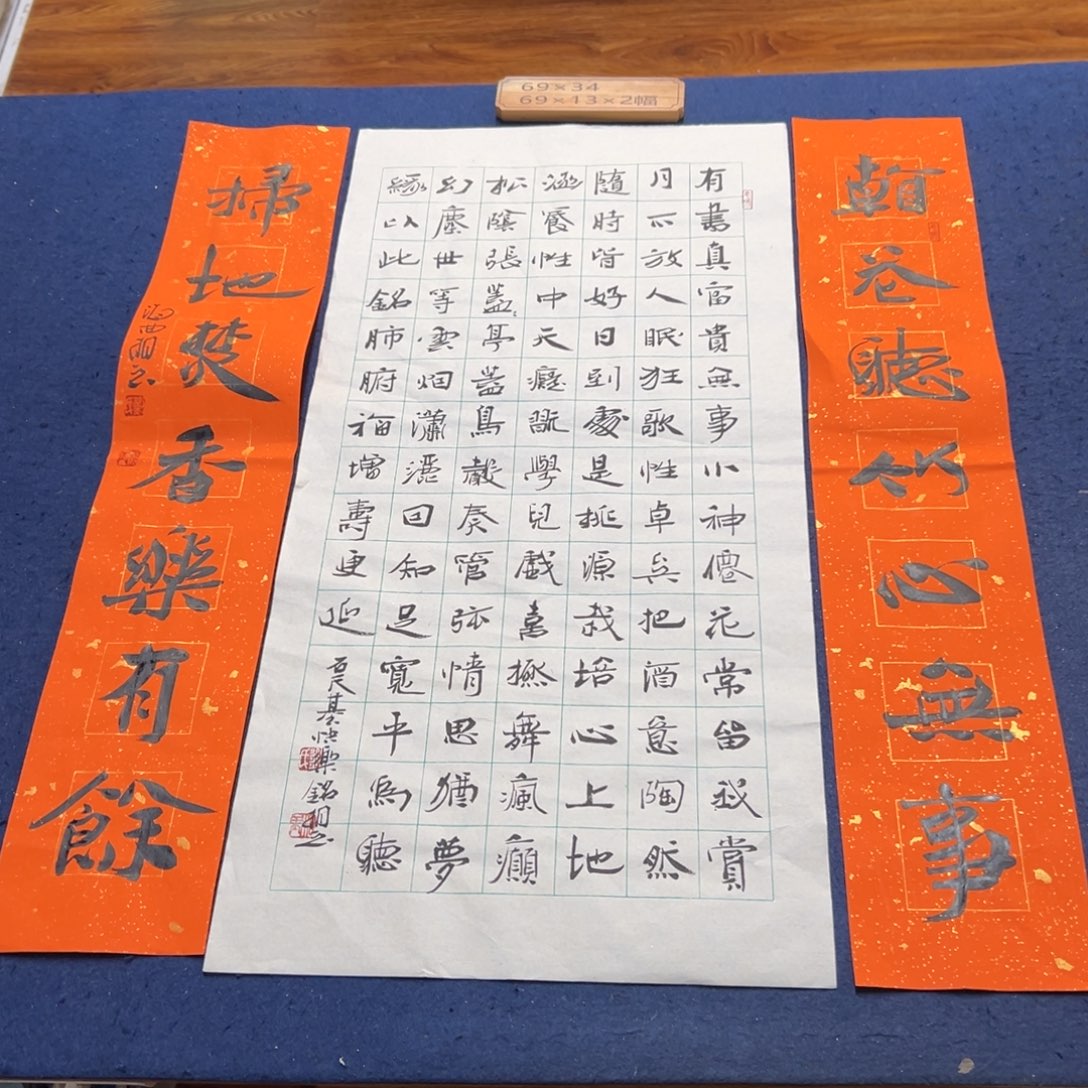 69×34
69×13×2幅
看花聽竹心無事
有書真富貴無事小神僊花常留我賞
月不放人眠狂歌性卓兵把酒意陶然
隨時皆好日到處是桃源栽培心上地
涵養性中天癡翫學兒戲喜極舞瘋癲
松陰張蓋亭蓋鳥聲奏管弦情思猶夢
幻塵世等雲烟瀟灑因知足寬平為聽
緣以此銘肺腑福增壽更延
石天基快樂銘
掃地焚香樂有餘